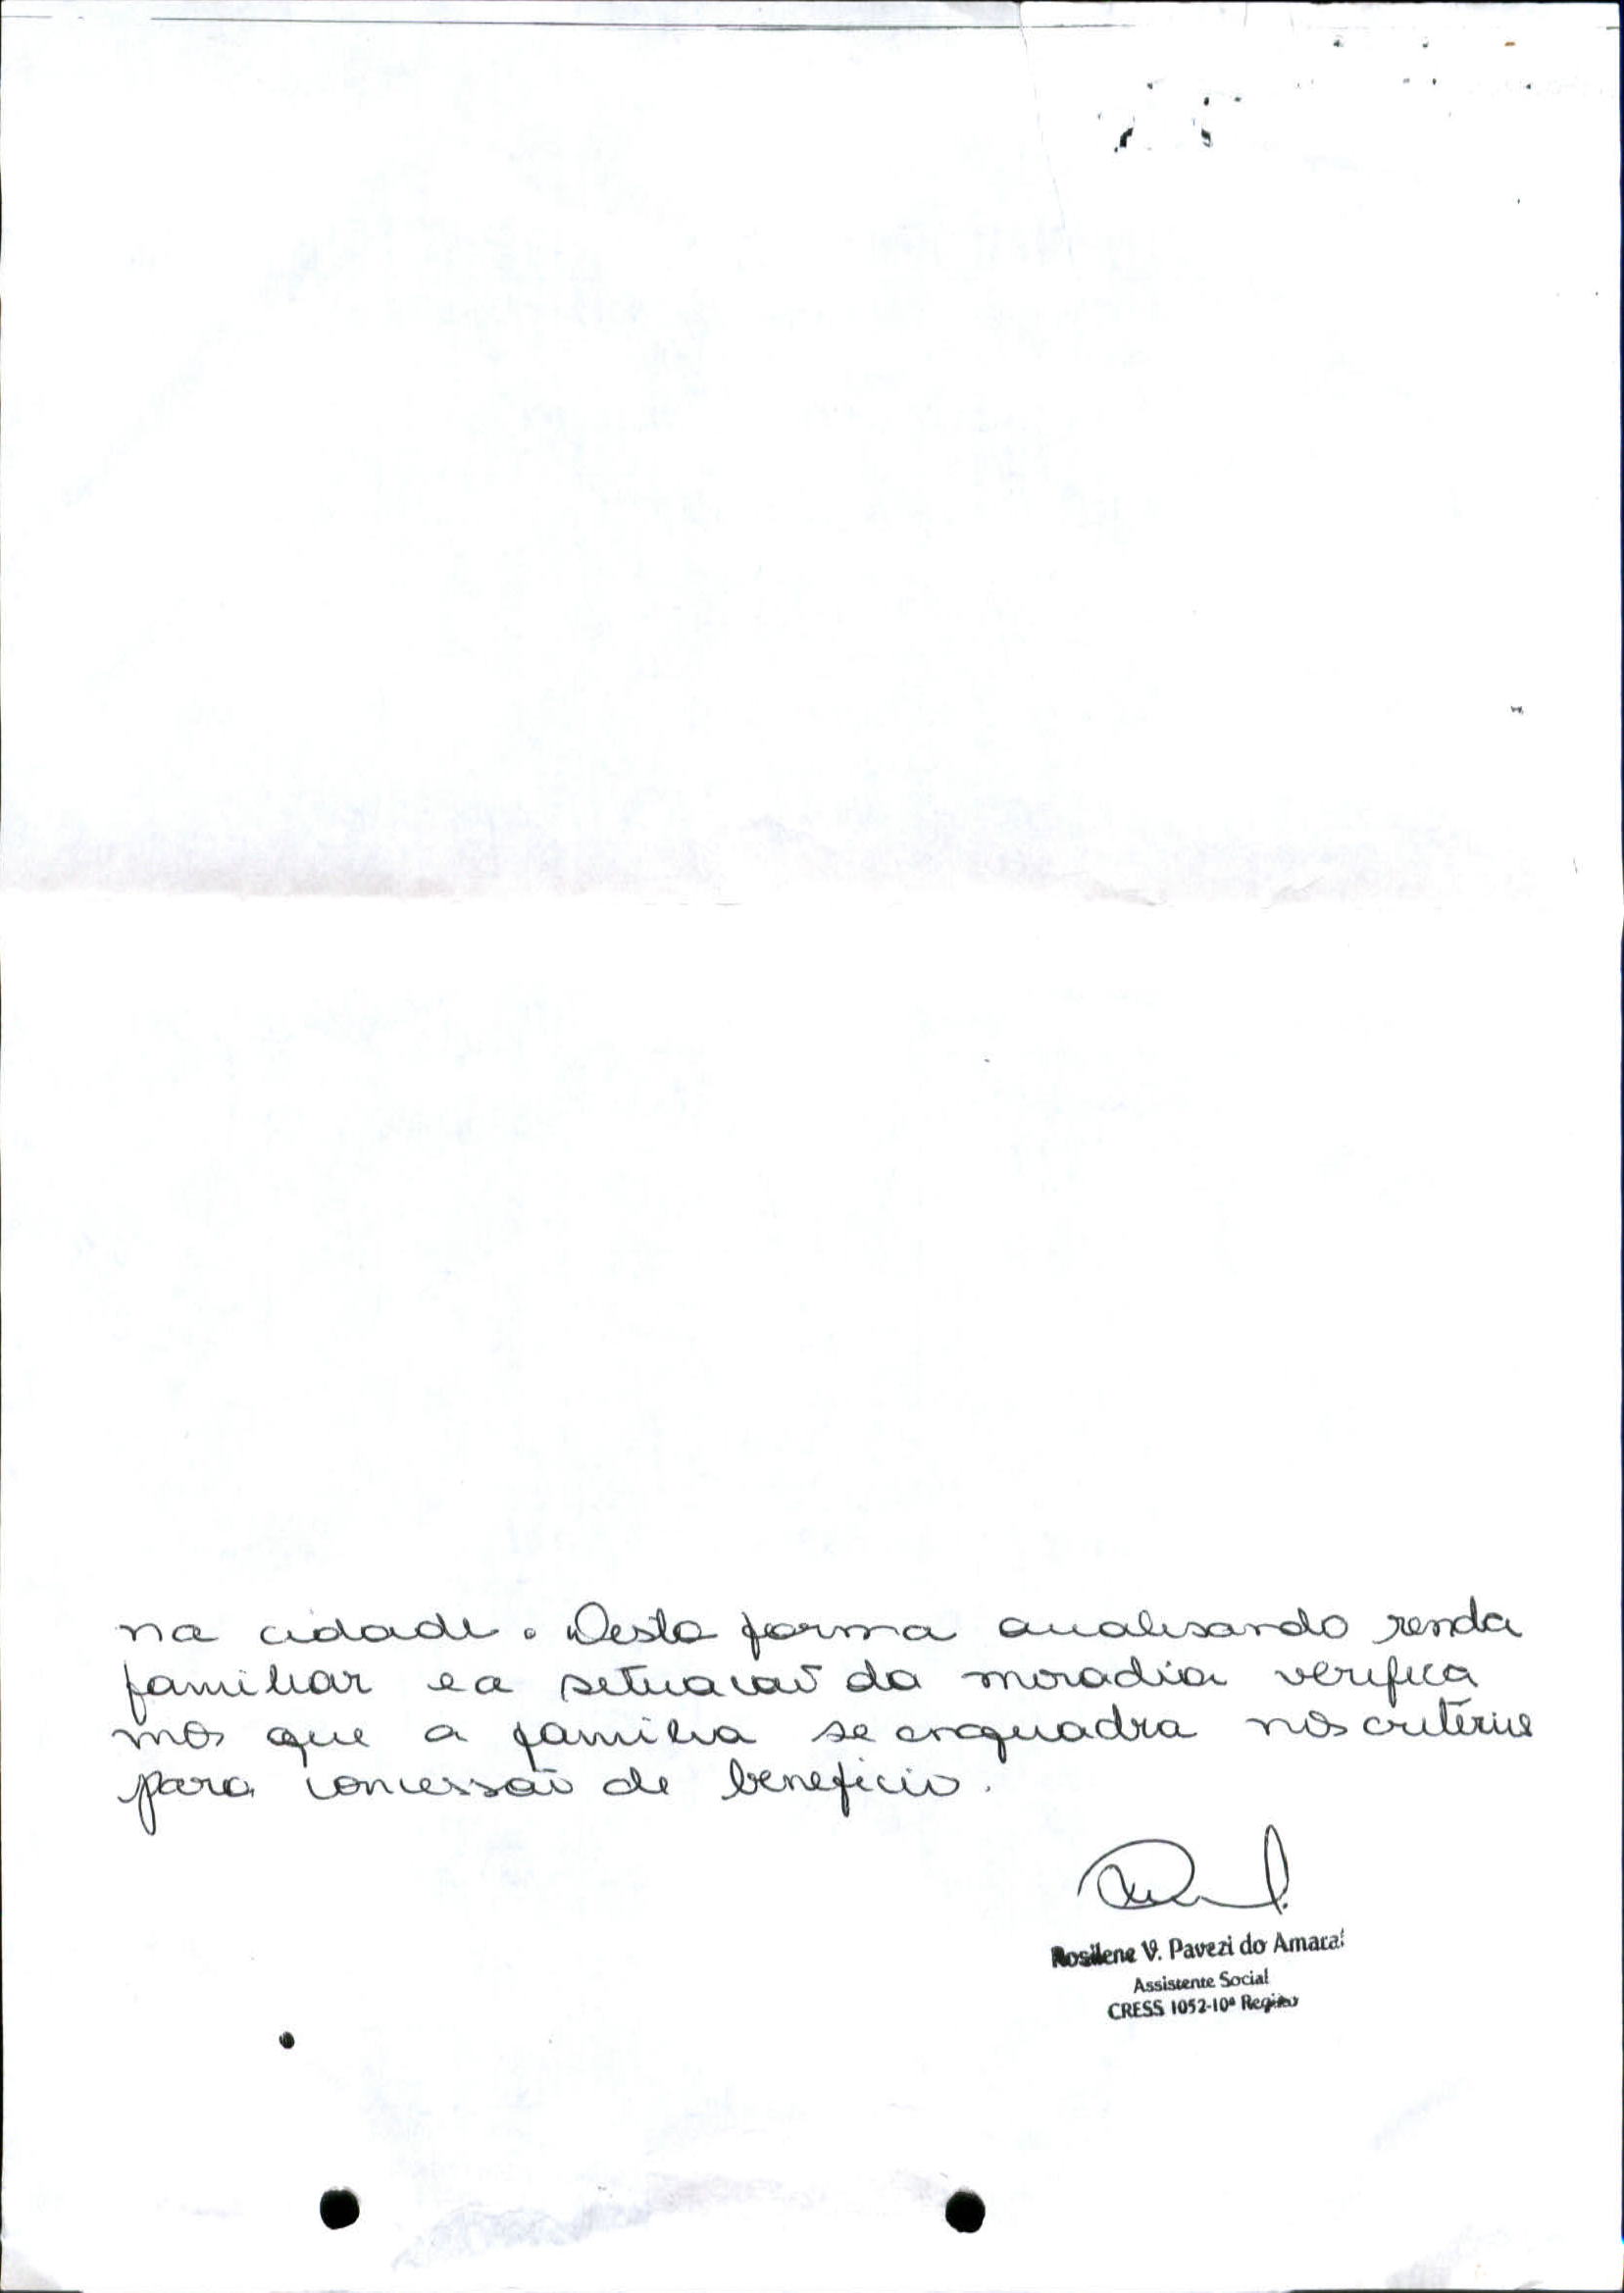 na cidade. Desta forma analisando renda
familiar e a setuacaõ da moradia verifica
mos que a familia se enquadra nos critérios
para concessaõ de beneficio.
Rosilene V. Pavezi do Amaral
Assistente Social
CRESS 1052-10ª Região